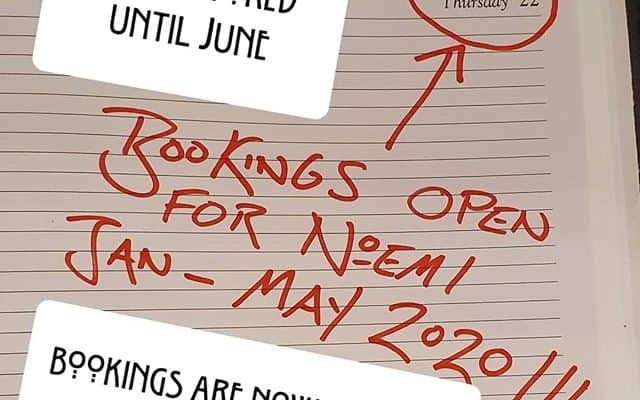 UNTIL JUNE
Thursday 22
BOOKINGS OPEN
FOR NOEMI
JAN - MAY 2020!!!
BOOKINGS ARE NOW